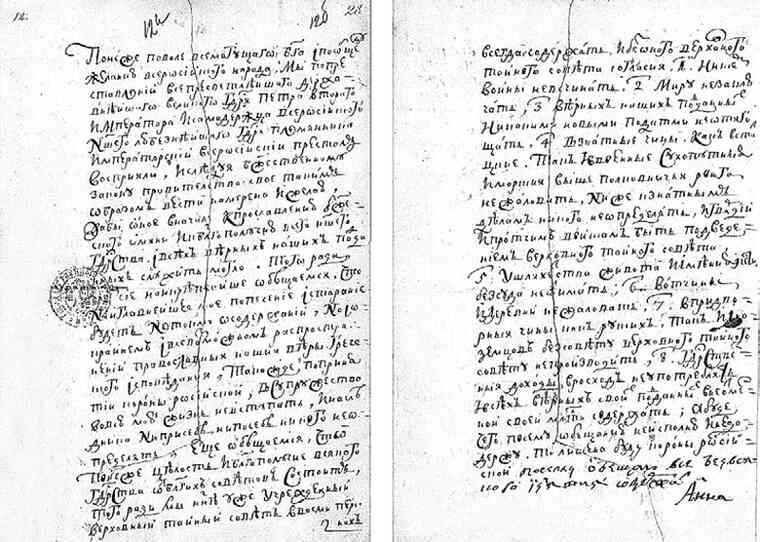 14.
12и
12б
28
Понеже поволе всемогущаго бга ипообще
желанию всеросиискаго народа, Мы попре
ставлении всепресветлеишаго держа-
внеишаго великого гдря Петра второго
Императора исамодержца всеросииского
Ншего любезнеишаго гдря племянника
императорскии всеросиискии престолъ
восприяли, иследуя бжественному
закону правителство свое такимъ
образомъ вести намерена ижелаю,
дабы оное вначале кпрославлению бже-
ского имяни иблагополучию всего ншего
гдрства ивсехъ верныхъ нашихъ подда
ныхъ служить могло. Того ради
сие наикрепчаише обещаемся, что
наиглавнеишее мое попечение истарание
будетъ нетокмо осодержании, но io
краинемъ iвсевозможномъ распростра-
нении православныя нашия веры грече-
ского iсповедания, такожде, поприня
тии короны росиискои, всупружество
вовсю мою жизнь невступать, инасле
дника ниприсебе, нипосебе никого неω-
пределять. Еще обещаемся, что
понеже целость иблагополучие всякого
гдрства ωблагихъ советовъ состоитъ,
того ради мы ныне уже учрежденныи
верховныи таинои советъ ввосми пер-
сонахъ
всегда содержать, ибезоного верховного
таиного совета согласия. 1. Нискемъ
воины невсчинать. 2 Миру незаклю
чать, 3 верныхъ нашихъ подданныхъ
никакими новыми податми неотяго
щать. 4 взнатные чины, какъ вста
цкие, такъ ивоенные сухопутные
иморские выше полковничья ранга
нежаловать, ниже кзнатнымъ
деламъ никого неωпределять, игвардии
ипротчимъ воискамъ быть подведе-
ниемъ верховного таиного совета.
5 ушляхетства живота иимения ичести
безсуда неωтимать, 6 вотчины
идеревни нежаловать, 7 впридво-
рные чины какъ руских, такъ ино-
земцовъ безсовету верховного таиного
совета непроизводить, 8 гдрстве-
ныя доходы врасходъ неупотреблять
ивсехъ верныхъ своихъ подданныхъ внеωтме
ннои своеи млсти содержать; абуде
чего посему обещанию неисполню инедо-
держу, толишена буду короны росии-
скои. посему обещаю все безвся-
кого iзятия содержать
Анна